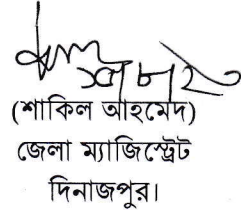 (শাকিল আহমেদ)
জেলা ম্যাজিস্ট্রেট
দিনাজপুর।